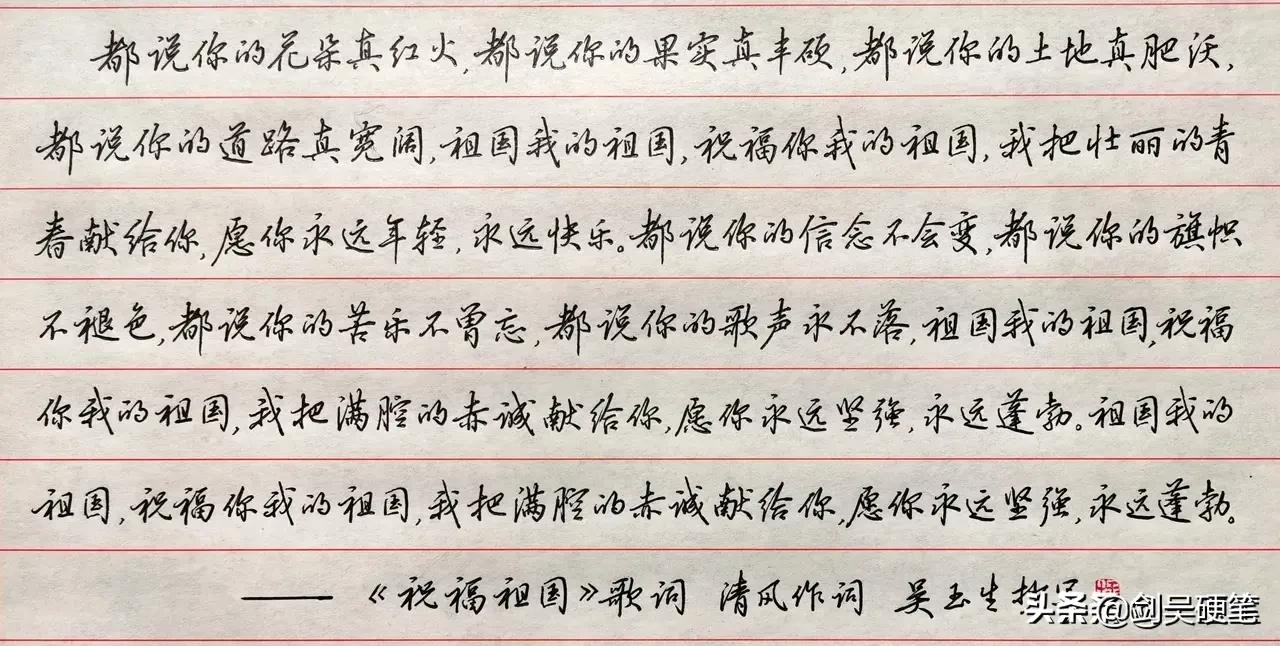 都说你的花朵真红火,都说你的果实真丰硕,都说你的土地真肥沃,
都说你的道路真宽阔,祖国我的祖国,祝福你我的祖国,我把壮丽的青
春献给你,愿你永远年轻,永远快乐。都说你的信念不会变,都说你的旗帜
不褪色,都说你的苦乐不曾忘,都说你的歌声永不落,祖国我的祖国,祝福
你我的祖国,我把满腔的赤诚献给你,愿你永远坚强,永远蓬勃。祖国我的
祖国,祝福你我的祖国,我把满腔的赤诚献给你,愿你永远坚强,永远蓬勃。
——《祝福祖国》歌词 清风作词 吴玉生
头条@剑吴硬笔